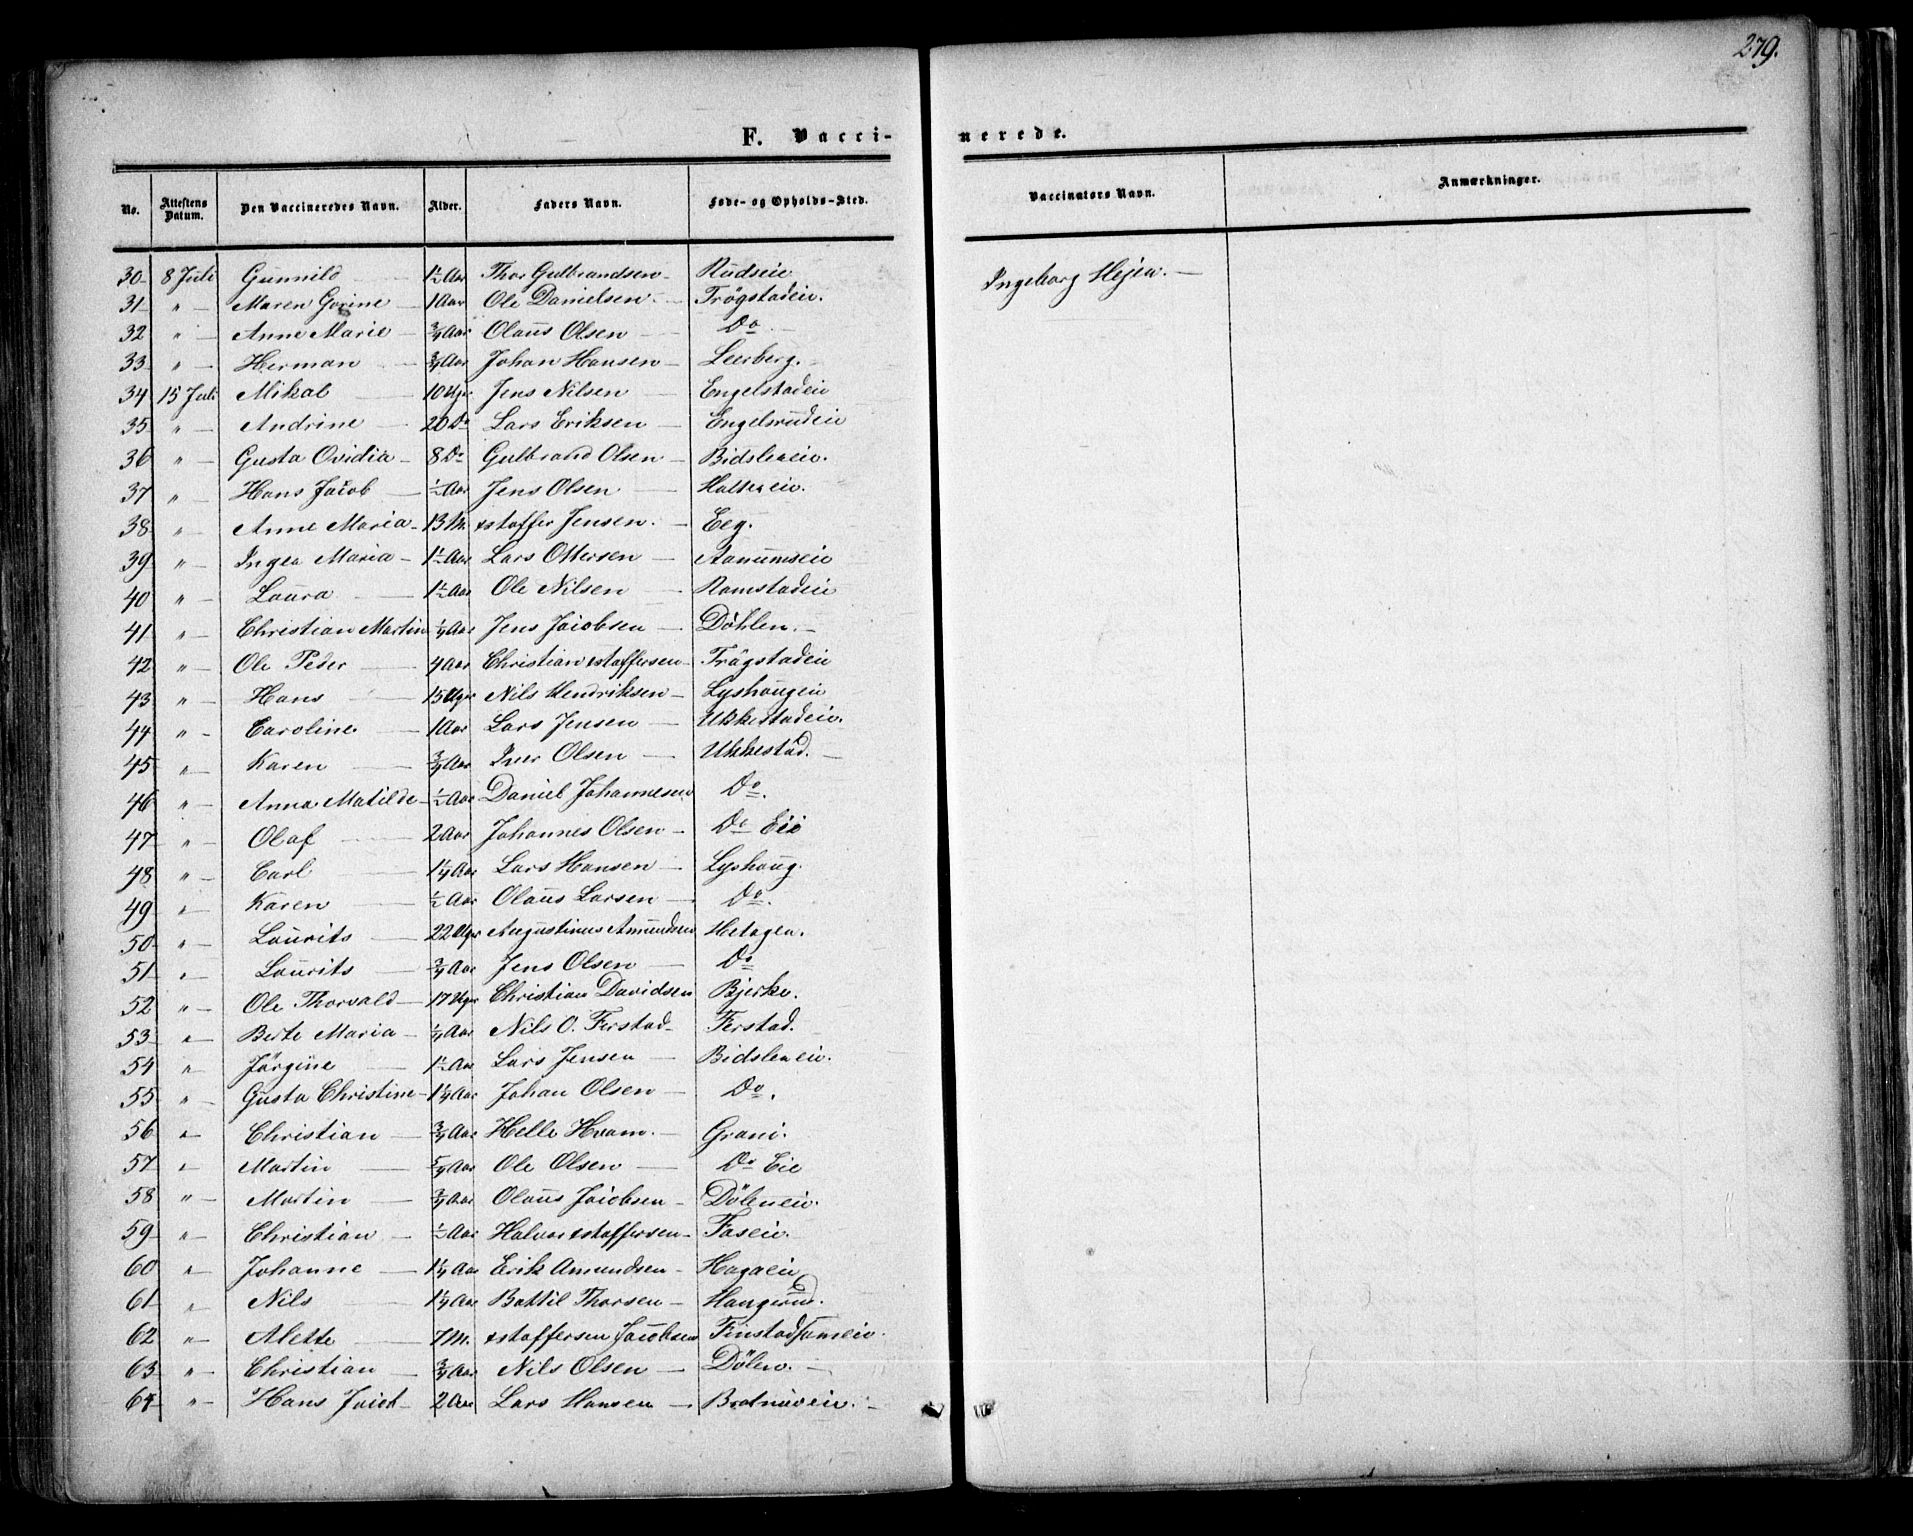 279.
F. Vaccinerede.
No. Attestens Datum. Den Vaccineredes Navn. Alder. Faders Navn. Føde- og Opholds-Sted. Vaccinators Navn. Anmærkninger.
30 8 Juli Gunnild 1½ Aar Thor Gulbrandsen Rudseie Ingeborg Hejea.
31 " Maren Gorine 1 Aar Ole Danielsen Trøgstadeie.
32 " Anne Marie ¾ Aar Olaus Olsen Do
33 " Herman ¾ Aar Johan Hansen Leerberg.
34 15 Juli Mikal 10 Uger Jens Nilsen Engelstadeie
35 " Andrine 20 Do Lars Eriksen Engelsrudeie
36 " Gusta Ovidia 8 Do Gulbrand Olsen Bidsleneie.
37 " Hans Jacob ½ Aar Jens Olsen
38 " Anne Maria 13 M. xstoffer Jensen. Eeg.
39 " Inger Maria 1½ Aar Lars Ottersen Aanumseie
40 " Laura 1½ Aar Ole Nilsen Ramstadeie
41 " Christian Martin ¼ Aar Jens Jacobsen Döhlen.
42 " Ole Peder 4 Aar Christian xstoffersen Trögstadeie
43 " Hans 15 Uger Nils Hendriksen Lyshaugeie
44 " Caroline 1 Aar Lars Jensen Ukkestadeie.
45 " Karen ¾ Aar Iver Olsen Ukkestad.
46 " Anna Matilde ½ Aar Daniel Johannesen Do.
47 " Olaf 2 Aar Johannes Olsen Do Eie
48 " Carl 1¼ Aar Lars Hansen Lyshaug.
49 " Karen ½ Aar Olaus Larsen Do.
50 " Laurits 22 Uger Augustinus Amundsen Hetagen.
51 " Laurits ¾ Aar Jens Olsen Do
52 " Ole Thorvald 17 Uger Christian Davidsen Bjerke.
53 " Berte Maria ¼ Aar Nils O. Ferstad Ferstad.
54 " Jörgine 1½ Aar Lars Jensen Bidsleneie.
55 " Gusta Christine 1¼ Aar Johan Olsen Do.
56 " Christian ¾ Aar Helle Hvam. Grani.
57 " Martin 5/4 Aar Ole Olsen Do Eie
58 " Martin ¾ Aar Olaus Jacobsen Döleneie.
59 " Christian ½ Aar Halvor xstoffersen Faseie.
60 " Johanne 1¼ Aar Erik Amundsen Hagaeie
61 " Nils 1¼ Aar Bottil Thorsen Haugerud.
62 " Alette 7 M. xstoffersen Jacobsen
63 " Christian ¾ Aar Nils Olsen Dölen.
64 " Hans Jacob 2 Aar Lars Hansen